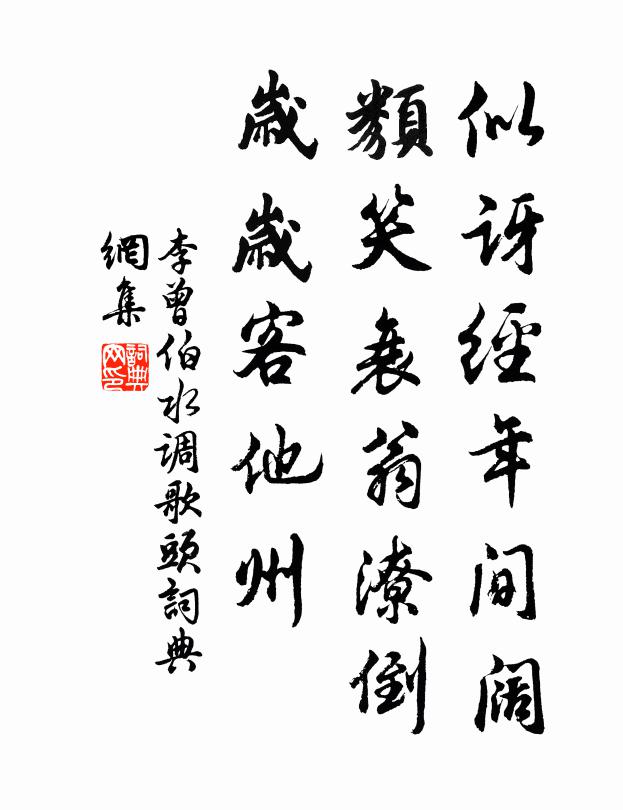 似讶經年间阔
類笑衰翁潦倒
歲歲客他州
李曾伯水调歌頭詞典
網集
詞典
网印